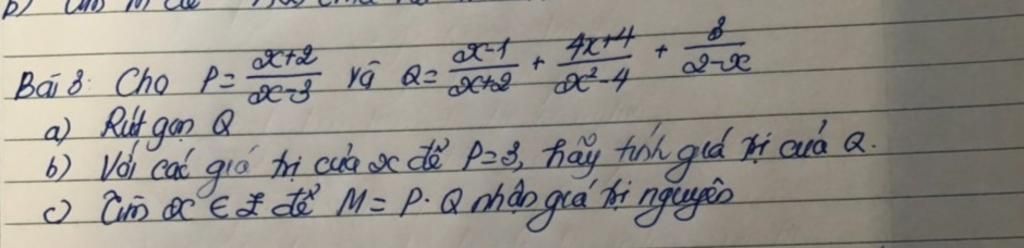 Bài 3: Cho P = \frac{x+2}{x-3} và Q = \frac{x-1}{x+2} + \frac{4x+4}{x^2-4} + \frac{3}{2-x}
a) Rút gọn Q
b) Với các giá trị của x để P=3, hãy tính giá trị của Q.
c) Tìm x ∈ Z để M = P. Q nhận giá trị nguyên